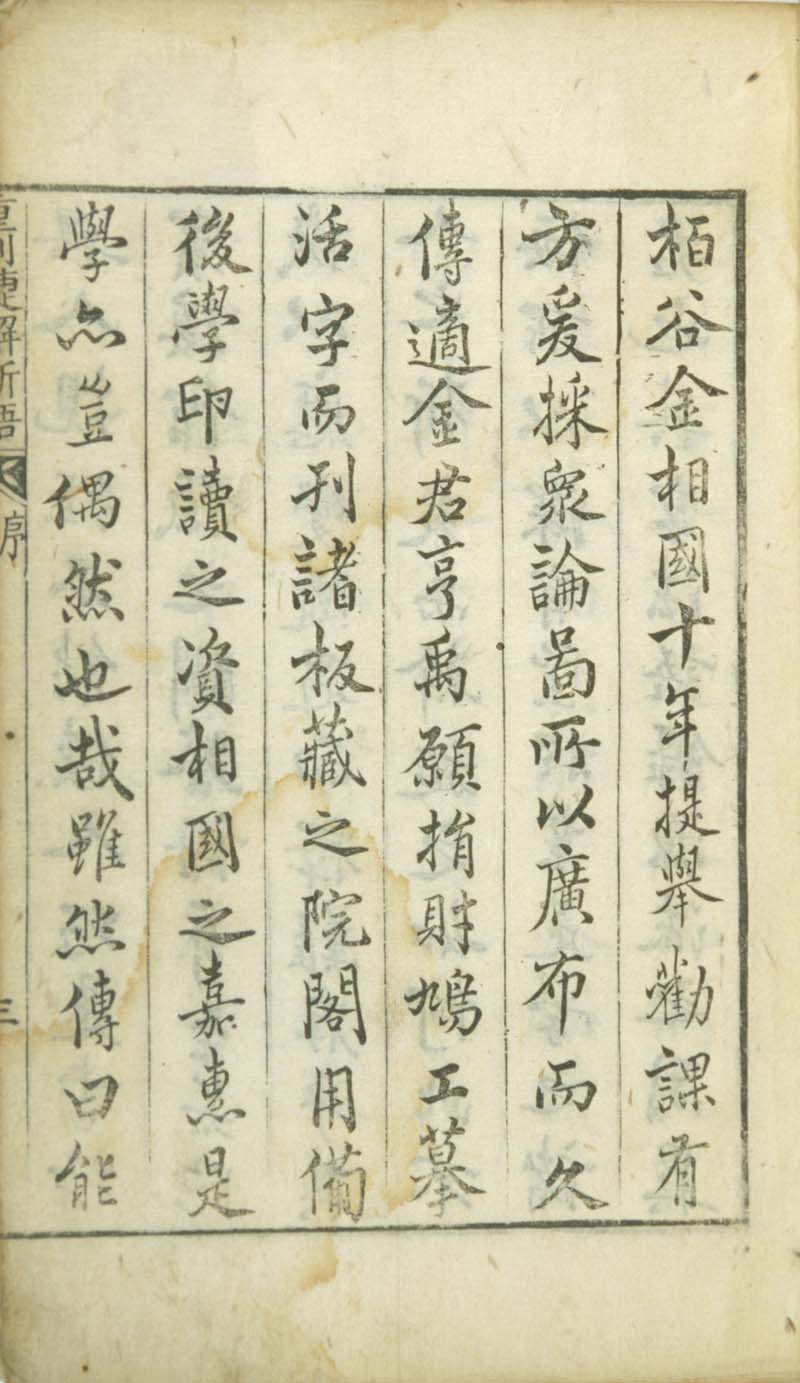 栢谷金相國十年提舉勸課有
方爰採衆論啚所以廣布而久
傳適金君亨禹願捐財鳩工摹
活字而刋諸板藏之院閣用備
後學印讀之資相國之嘉惠是
學亦豈偶然也哉雖然傳曰能
重刊捷解新語 序 三